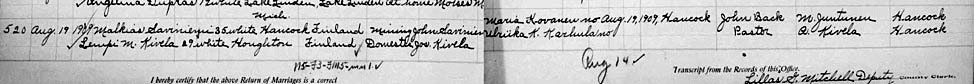 Angelina Dupras 19 white Lake Linden Lake Linden at home Moses
Mich
520 Aug 19 1909 Malkias Sarviniemi 35 white Hancock Finland Mining John Sarvinien
Maria Kovanen no Aug. 19, 1909, Hancock John Back M. Juntunen Hancock
Lempi M. Kivela 29 white Houghton Finland Domestic Jos. Kivela
K. Karhula no Pastor A. Kivela Hancock
Aug 14 ✓
I hereby certify that the above Return of Marriages is a correct
Transcript from the Records of this Office.
Lillas G. Mitchell Deputy County Clerk.